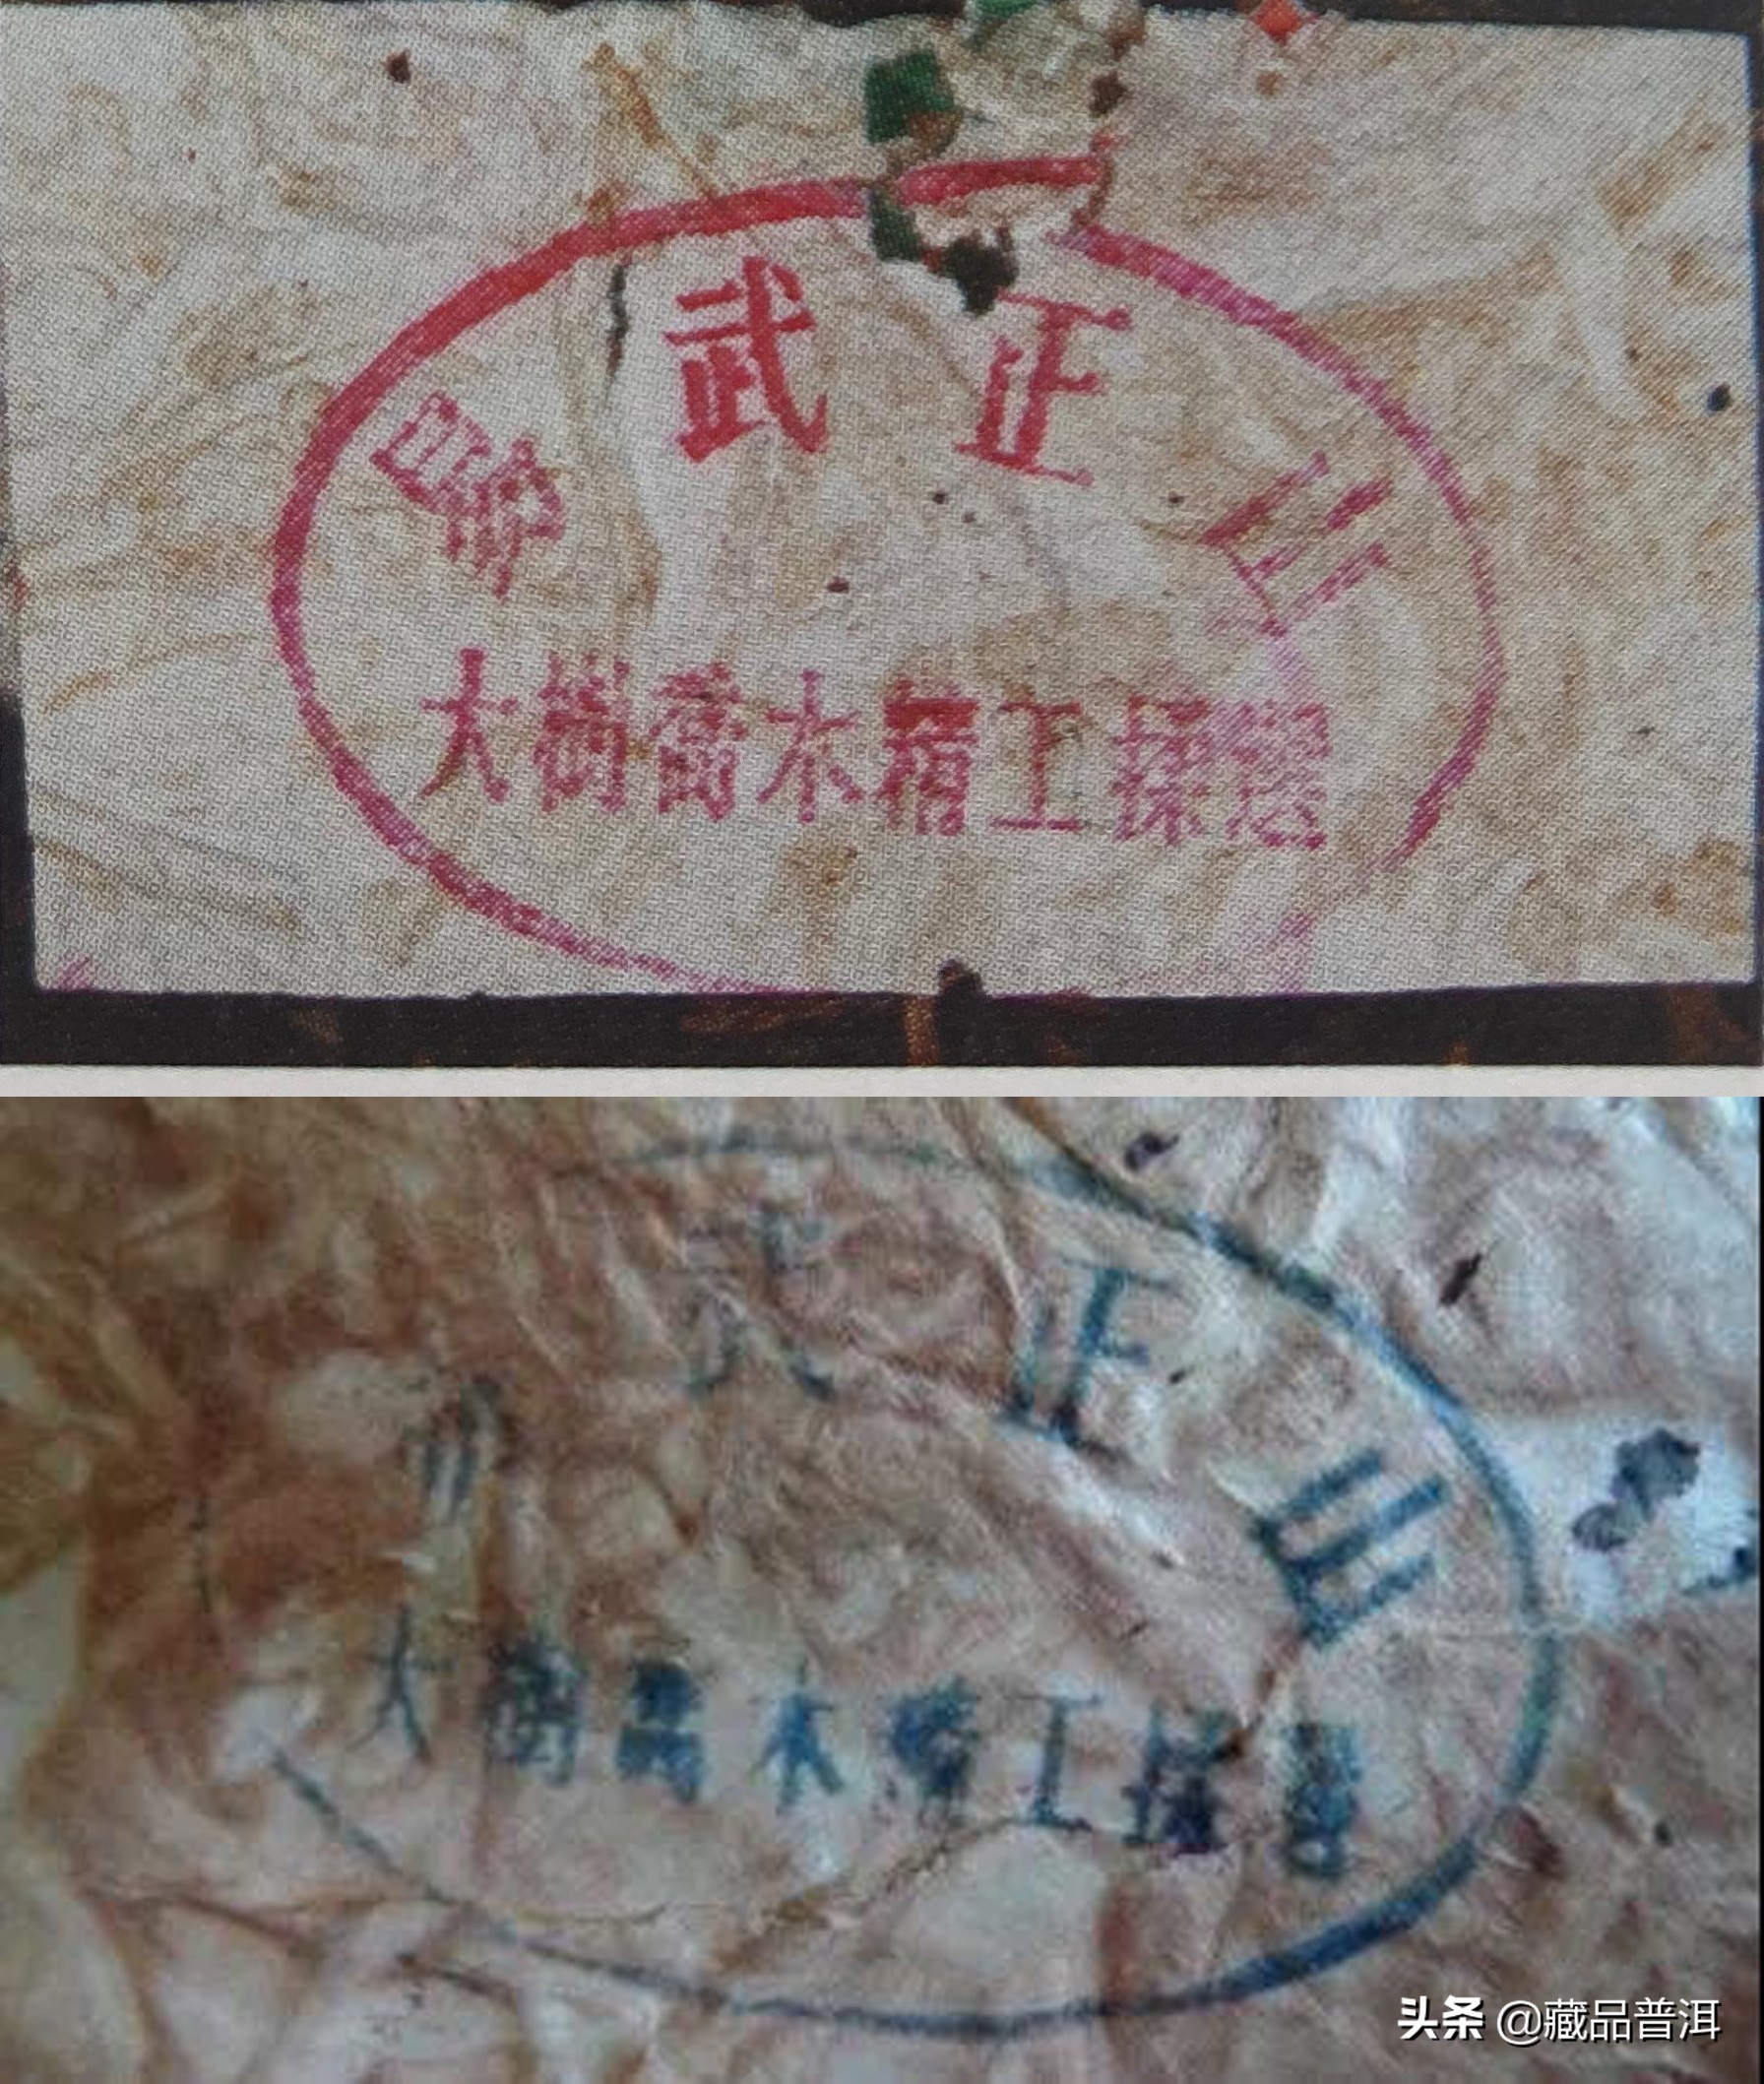 易武正山
大樹喬木精工
武正山
大樹喬木精工
头条 @藏品普洱